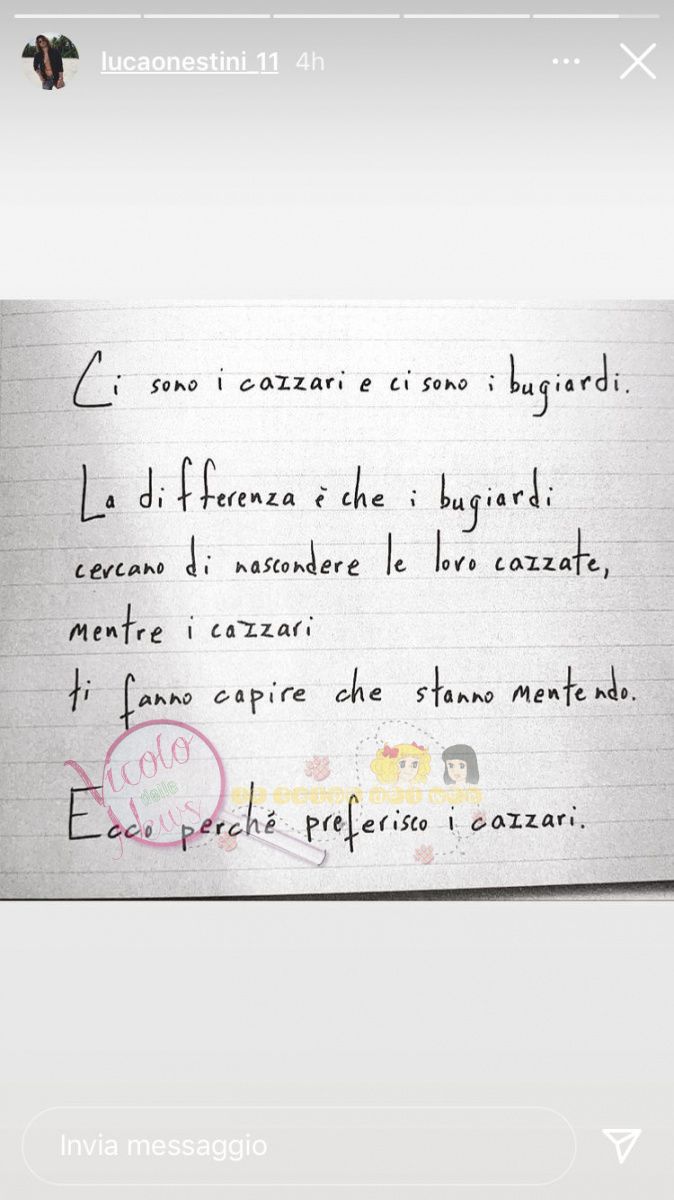 lucaonestini_11 4h
Ci sono i cazzari e ci sono i bugiardi.
La differenza è che i bugiardi
cercano di nascondere le loro cazzate,
mentre i cazzari
ti fanno capire che stanno mentendo.
Vicolo
delle
News
Ecco perché preferisco i cazzari.
Invia messaggio